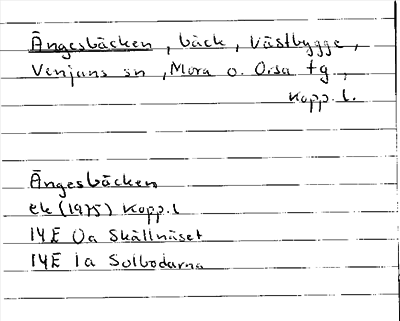 Ängesbäcken, bäck, Västbygge,
Venjans sn, Mora o. Orsa tg,
Kopp. l.
Ängesbäcken
ek (1975) Kopp. l
14E 0a Skållnäset
14E 1a Solbodarna